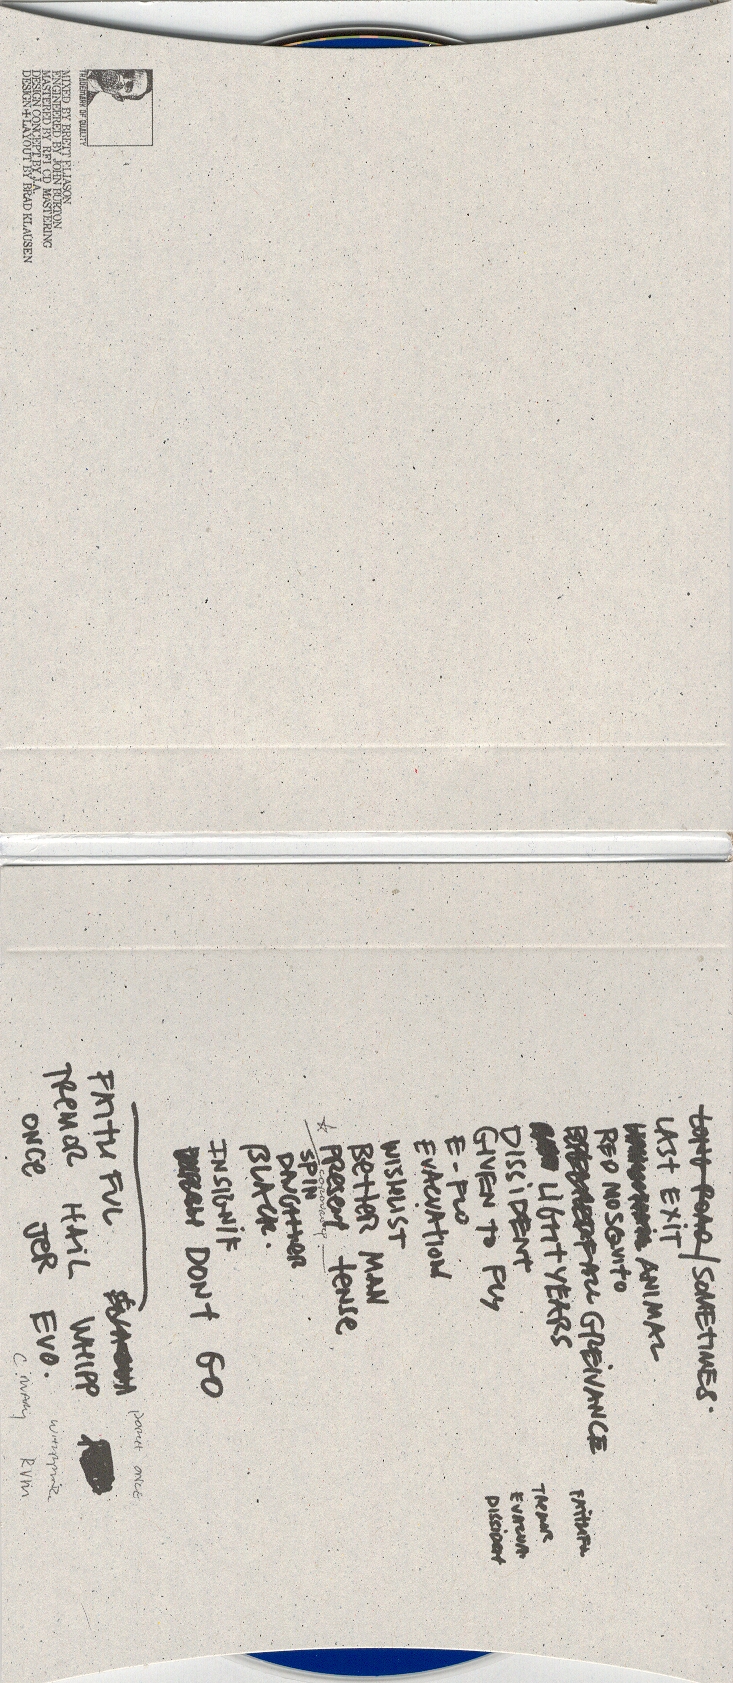 TRADEMARK OF QUALITY
MIXED BY BRETT ELIASON
ENGINEERED BY JOHN BURTON
MASTERED BY RFI CD MASTERING
DESIGN CONCEPT BY J.A.
DESIGN + LAYOUT BY BRAD KLAUSEN
LONG ROAD / SOMETIMES.
LAST EXIT
ANIMAL
RED MOSQUITO
GREIVANCE
LIGHT YEARS
DISSIDENT
GIVEN TO FLY
E-FLO
EVACUATION
WISHLIST
BETTER MAN
PRESENT TENSE
SPIN
DAUGHTER
BLACK.
INSIGNIF
DON'T GO
FAITHFUL
TREMOR HAIL WHIPP
ONCE JER EVO.
PORCH ONCE
C. MARY RVM
FAITHFUL
TREMOR
EVACUA
DISSIDENT